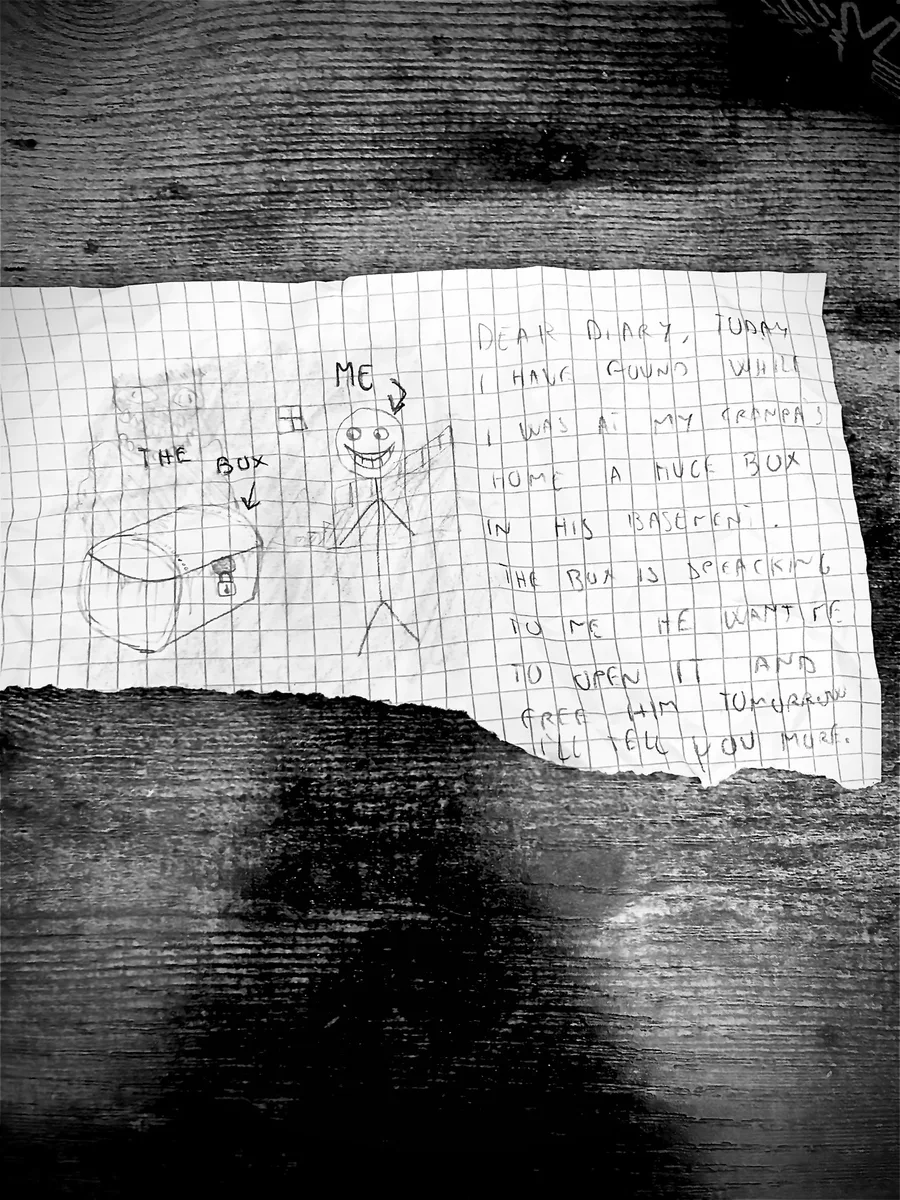 ME
THE BOX
DEAR DIARY, TODAY
I HAVE FOUND WHILE
I WAS AT MY GRANPA'S
HOME A HUGE BOX
IN HIS BASEMENT.
THE BOX IS SPEACKING
TO ME HE WANT ME
TO OPEN IT AND
FREE HIM TOMORROW
I'LL TELL YOU MORE.